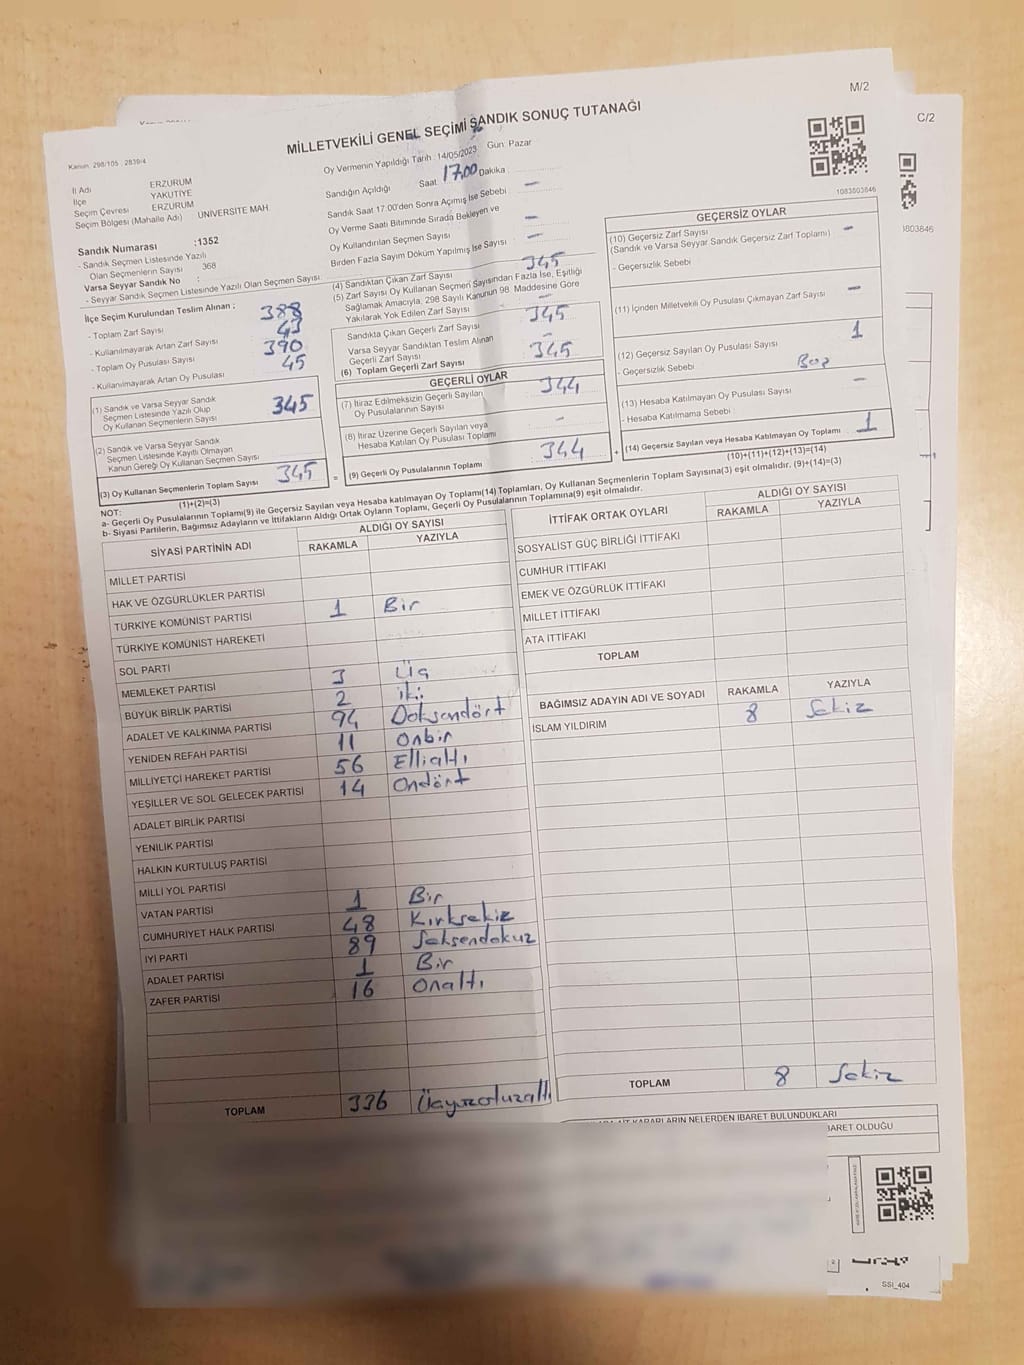 M/2
C/2
MİLLETVEKİLİ GENEL SEÇİMİ SANDIK SONUÇ TUTANAĞI
Kanun: 298/105 ; 2839/4
İl Adı ERZURUM
İlçe YAKUTİYE
Seçim Çevresi ERZURUM
Seçim Bölgesi (Mahalle Adı) UNİVERSİTE MAH.
Sandık Numarası :1352
- Sandık Seçmen Listesinde Yazılı
Olan Seçmenlerin Sayısı 368
Varsa Seyyar Sandık No :
- Seyyar Sandık Seçmen Listesinde Yazılı Olan Seçmen Sayısı :
İlçe Seçim Kurulundan Teslim Alınan ;
- Toplam Zarf Sayısı 388
- Kullanılmayarak Artan Zarf Sayısı 43
- Toplam Oy Pusulası Sayısı 390
- Kullanılmayarak Artan Oy Pusulası 45
(1) Sandık ve Varsa Seyyar Sandık
Seçmen Listesinde Yazılı Olup
Oy Kullanan Seçmenlerin Sayısı 345
(2) Sandık ve Varsa Seyyar Sandık
Seçmen Listesinde Kayıtlı Olmayan
Kanun Gereği Oy Kullanan Seçmen Sayısı
(3) Oy Kullanan Seçmenlerin Toplam Sayısı 345
(1)+(2)=(3)
Oy Vermenin Yapıldığı Tarih : 14/05/2023 Gün: Pazar
Sandığın Açıldığı Saat 17.00 Dakika
Sandık Saat 17:00'den Sonra Açımış İse Sebebi –
Oy Verme Saati Bitiminde Sırada Bekleyen ve
Oy Kullandırılan Seçmen Sayısı –
Birden Fazla Sayım Döküm Yapılmış İse Sayısı –
(4) Sandıktan Çıkan Zarf Sayısı 345
(5) Zarf Sayısı Oy Kullanan Seçmen Sayısından Fazla İse, Eşitliği
Sağlamak Amacıyla, 298 Sayılı Kanunun 98. Maddesine Göre
Yakılarak Yok Edilen Zarf Sayısı –
Sandıkta Çıkan Geçerli Zarf Sayısı 345
Varsa Seyyar Sandıktan Teslim Alınan
Geçerli Zarf Sayısı –
(6) Toplam Geçerli Zarf Sayısı 345
GEÇERLİ OYLAR
(7) İtiraz Edilmeksizin Geçerli Sayılan
Oy Pusulalarının Sayısı 344
(8) İtiraz Üzerine Geçerli Sayılan veya
Hesaba Katılan Oy Pusulası Toplamı -
= (9) Geçerli Oy Pusulalarının Toplamı 344
1083803846
803846
GEÇERSİZ OYLAR
(10) Geçersiz Zarf Sayısı
(Sandık ve Varsa Seyyar Sandık Geçersiz Zarf Toplamı) –
- Geçersizlik Sebebi
(11) İçinden Milletvekili Oy Pusulası Çıkmayan Zarf Sayısı –
(12) Geçersiz Sayılan Oy Pusulası Sayısı 1
- Geçersizlik Sebebi
(13) Hesaba Katılmayan Oy Pusulası Sayısı –
- Hesaba Katılmama Sebebi
+ (14) Geçersiz Sayılan veya Hesaba Katılmayan Oy Toplamı 1
(10)+(11)+(12)+(13)=(14)
NOT:
a- Geçerli Oy Pusulalarının Toplamı(9) ile Geçersiz Sayılan veya Hesaba katılmayan Oy Toplamı(14) Toplamları, Oy Kullanan Seçmenlerin Toplam Sayısına(3) eşit olmalıdır. (9)+(14)=(3)
b- Siyasi Partilerin, Bağımsız Adayların ve İttifakların Aldığı Ortak Oyların Toplamı, Geçerli Oy Pusulalarının Toplamına(9) eşit olmalıdır.
SİYASİ PARTİNİN ADI ALDIĞI OY SAYISI
RAKAMLA YAZIYLA
MİLLET PARTİSİ
HAK VE ÖZGÜRLÜKLER PARTİSİ
TÜRKİYE KOMÜNİST PARTİSİ 1 Bir
TÜRKİYE KOMÜNİST HAREKETİ
SOL PARTİ
MEMLEKET PARTİSİ 3 Üç
BÜYÜK BİRLİK PARTİSİ 2 iki
ADALET VE KALKINMA PARTİSİ 94 Doksandört
YENİDEN REFAH PARTİSİ 11 onbir
MİLLİYETÇİ HAREKET PARTİSİ 56 Ellialtı
YEŞİLLER VE SOL GELECEK PARTİSİ 14 Ondört
ADALET BİRLİK PARTİSİ
YENİLİK PARTİSİ
HALKIN KURTULUŞ PARTİSİ
MİLLİ YOL PARTİSİ
VATAN PARTİSİ 1 Bir
CUMHURİYET HALK PARTİSİ 48 Kırksekiz
İYİ PARTİ 89 Seksendokuz
ADALET PARTİSİ 1 Bir
ZAFER PARTİSİ 16 Onaltı
TOPLAM 336 Üçyüzotuzaltı
İTTİFAK ORTAK OYLARI ALDIĞI OY SAYISI
RAKAMLA YAZIYLA
SOSYALİST GÜÇ BİRLİĞİ İTTİFAKI
CUMHUR İTTİFAKI
EMEK VE ÖZGÜRLÜK İTTİFAKI
MİLLET İTTİFAKI
ATA İTTİFAKI
TOPLAM
BAĞIMSIZ ADAYIN ADI VE SOYADI RAKAMLA YAZIYLA
İSLAM YILDIRIM 8 Sekiz
TOPLAM 8 Sekiz
KARARLARIN NELERDEN İBARET BULUNDUKLARI
İBARET OLDUĞU
SSİ_404